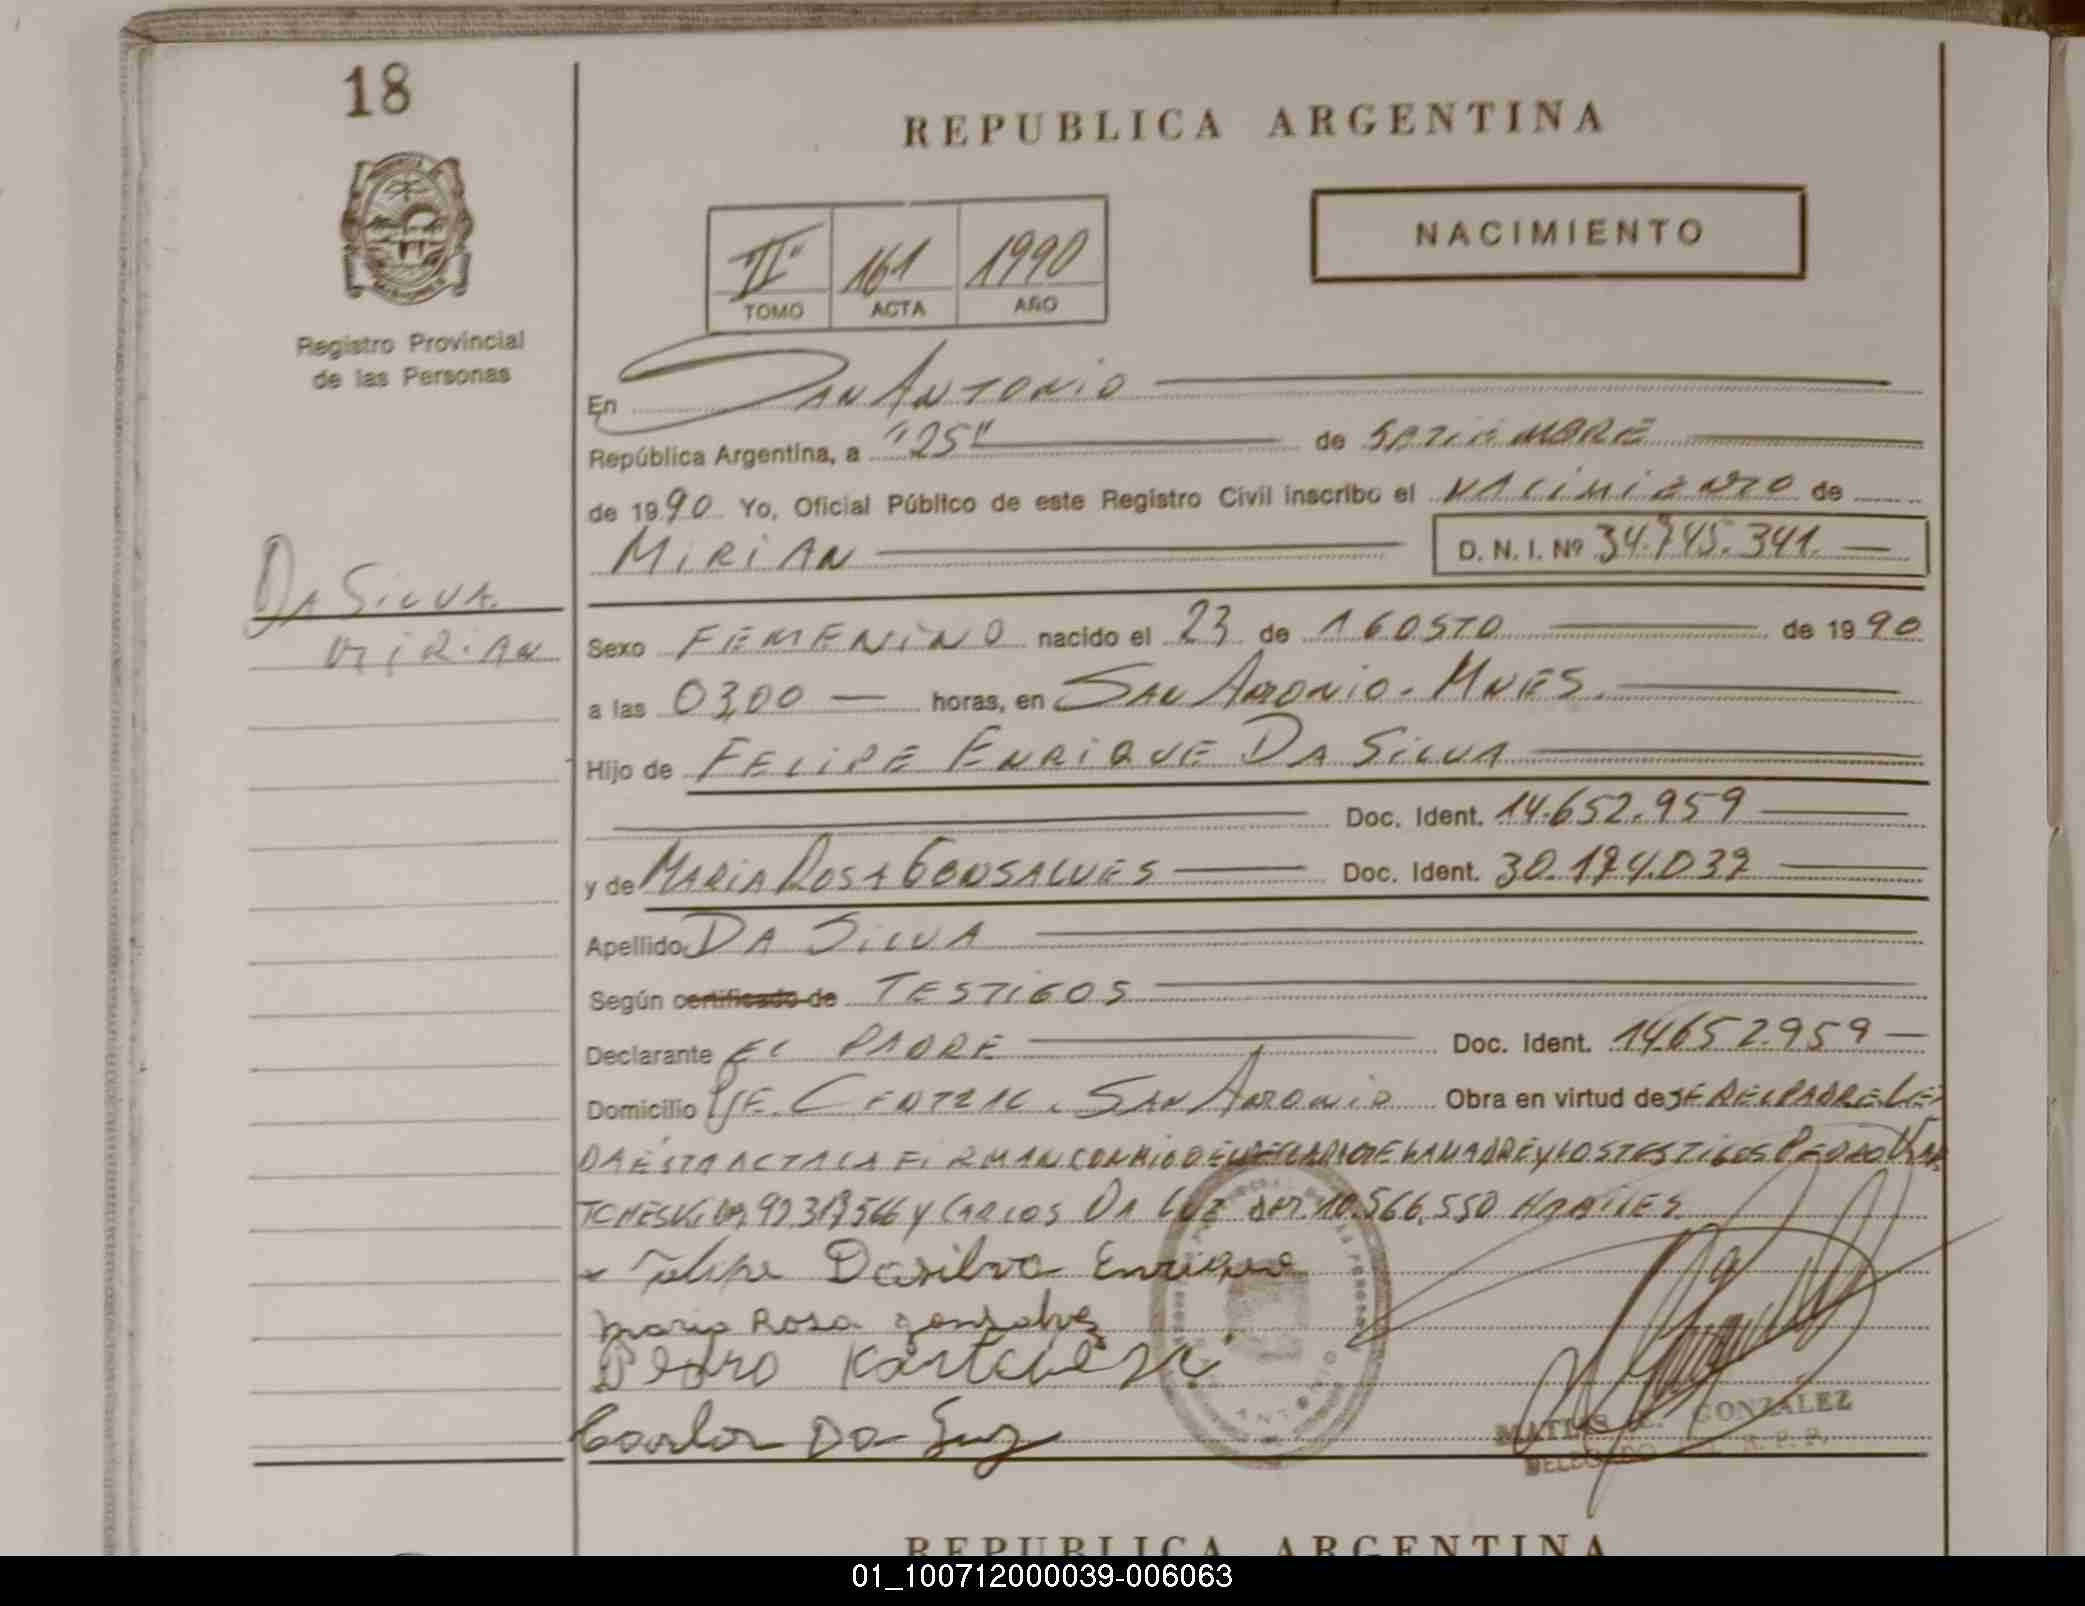 18
REPUBLICA ARGENTINA
NACIMIENTO
IIº 161 1990
TOMO ACTA AÑO
Registro Provincial
de las Personas
En SAN ANTONIO
República Argentina, a "25" de SETIEMBRE
de 1990 Yo, Oficial Público de este Registro Civil inscribo el NACIMIENTO de
MIRIAN D. N. I. Nº 34.745.341
DA SILVA
MIRIAN
Sexo FEMENINO nacido el 23 de AGOSTO de 1990
a las 03,00 horas, en SAN ANTONIO. MNES.
Hijo de FELIPE ENRIQUE DA SILVA
Doc. Ident. 14.652.959
y de MARIA ROSA GONSALVES Doc. Ident. 30.174.037
Apellido DA SILVA
Según certificado de TESTIGOS
Declarante EL PADRE Doc. Ident. 14.652.959
Domicilio CENTRAL. SAN ANTONIO Obra en virtud de SER EL PADRE LEI
DA ESTA ACTA LA FIRMAN CONMIGO EL DECLARANTE LA MADRE Y LOS TESTIGOS PEDRO KAR
TCHESKI Y CARLOS DA LUZ 10.566.550 HABILES.
Felipe Dasilva Enrique
Maria Rosa gonsalvez
Pedro
Carlos Da Luz
MATIAS GONZALEZ
DELEGADO R. P. P.
REPUBLICA ARGENTINA
01_100712000039-006063